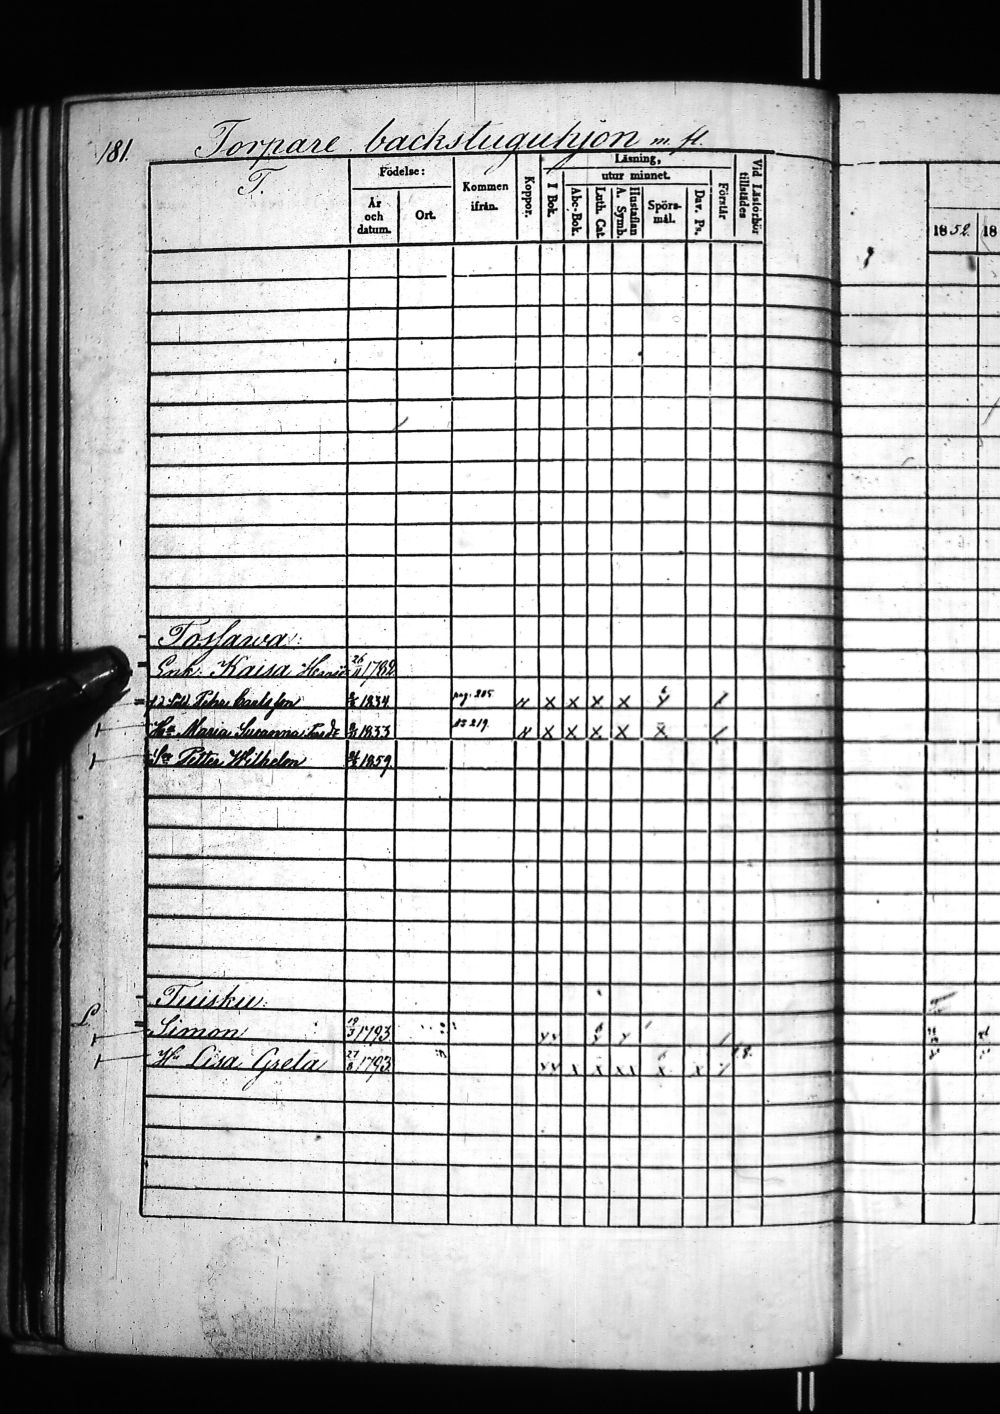 181. Torpare backstuguhjon m. fl.
T.
Födelse:
År och datum.
Ort.
Kommen ifrån.
Koppor.
Läsning,
utur minnet.
I Bok.
Abc-Bok.
Luth. Cat
Hustaflan A. Symb.
Spörs-mål.
Dav. Ps.
Förstår
Vid Läsförhör tillstädes
1852. 18
Tossawa:
Enk. Kaisa 26/11 1782
Petter Carlsson 1834 pag: 205 x x x x
Hu Maria Susanna 1833 No 219 x x x x x
Petter Wilhelm 1859.
Tuisku:
Simon 19/3 1793
Hu Lisa Greta 27/8 1793 58.